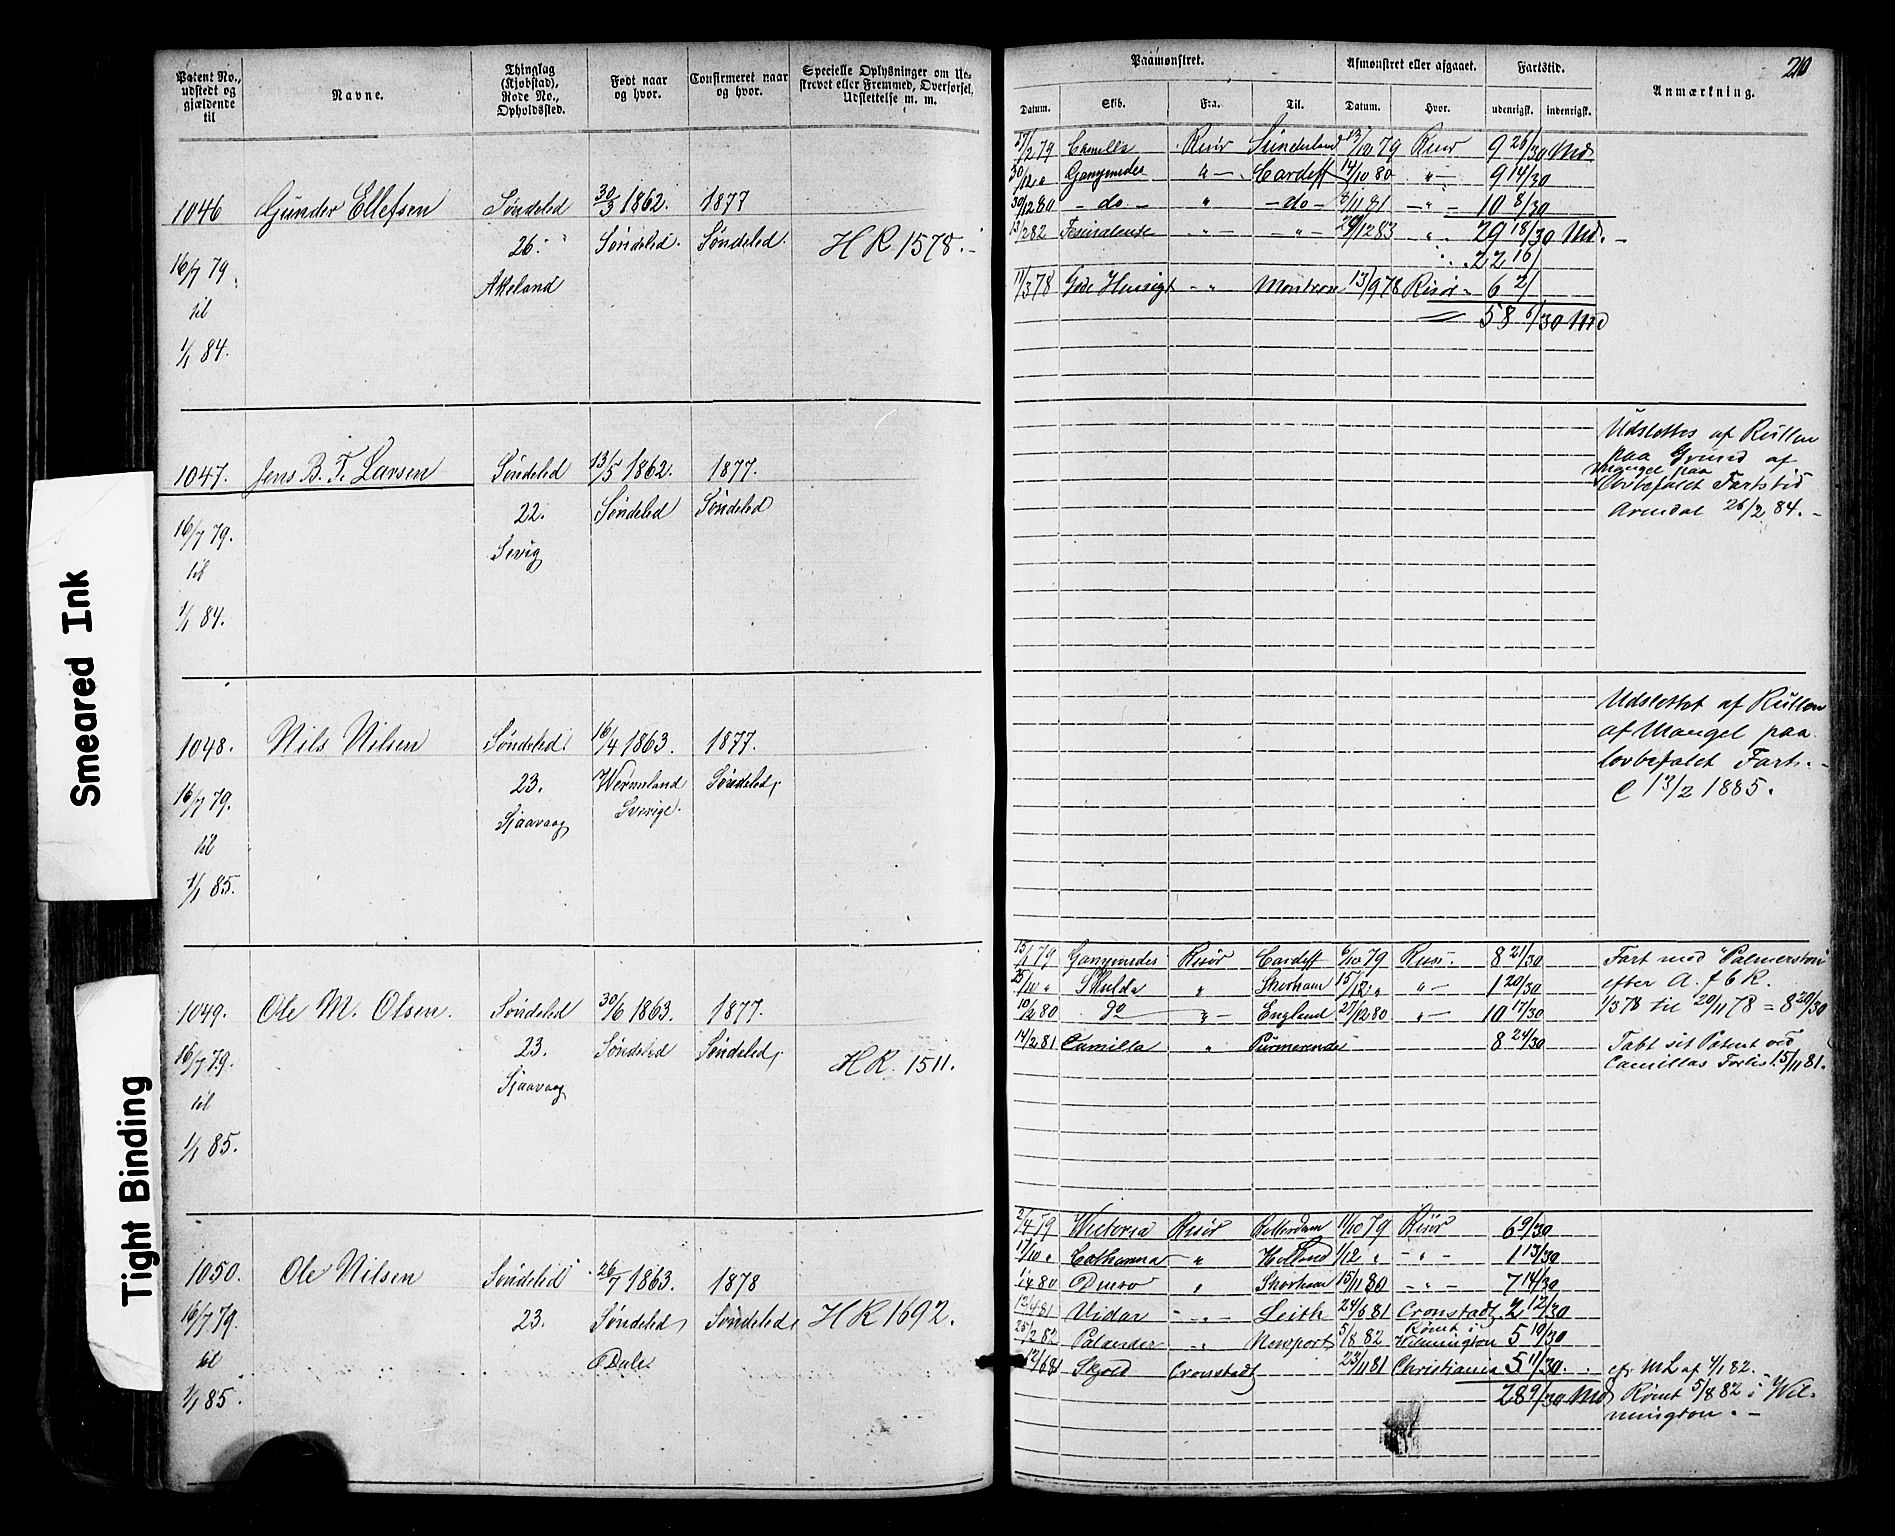 Smeared Ink
Tight Binding
Patent No., udstedt og gjældende til
Navne.
Thinglag (Kjøbstad), Rode No., Opholdssted.
Født naar og hvor.
Confirmeret naar og hvor.
Specielle Oplysninger om Ude-
strevet eller Fremmed, Overførsel,
Udslettelse m. m.
1046 Gunder Ellefsen Søndeled 30/3 1862. 1877
16/7 79 26. Søndeled. Søndeled. H R. 1578.
til Akeland
1/1 84.
1047. Jens B. T. Larsen Søndeled 13/5 1862. 1877.
16/7 79. 22. Søndeled Søndeled
til Sevig
1/1 84.
1048. Nils Nilsen Søndeled. 16/4 1863. 1877.
16/7 79. 23. Wermeland Søndeled,
til Sjaavaag Sverige.
1/1 85.
1049. Ole M. Olsen. Søndeled 30/6 1863. 1877.
16/7 79. 23. Søndeled Søndeled, H R. 1511.
til Sjaavaag
1/1 85.
1050. Ole Nilsen Søndeled 26/7 1863. 1878
16/7 79. 23. Søndeled, Søndeled, H R 1692.
til Dale.
1/1 85.
210
Paamønstret. Afmønstret eller afgaaet. Fartstid. Anmærkning.
Datum. Skib. Fra. Til. Datum. Hvor. udenrigst. indenrigst.
17/2 79 Camilla Risør Sunderland 13/10 79 Risør 9 26/30 Md.
30/12 " Ganymedes " — Cardeff 14/10 80 " — 9 14/30
30/12 80 — do — " — do — 8/11 81 — " — 10 8/30
13/2 82 " — — " — 29/12 83 " . 29 18/30 Md. —
22 16/
11/3 78 Gode Hensigt — " Montrose 13/9 78 Risør 6 2/
58 6/30 Md
Udslettes af Rullen
paa Grund af
Mangel paa
lovbefalet Fartstid
Arendal 26/2 84. —
Udslettet af Rullen
af Mangel paa
lovbefalet Farts. —
C 13/2 1885.
15/1 79 Ganymedes Risør Cardeff 6/10 79 Risør. 8 21/30 Fart med "Palmerston"
25/10 " Skulda " Shorham 15/12 " " — 1 20/30 efter A. f b R.
10/2 80 do " — England 27/12 80 " — 10 17/30 1/3 78 til 20/11 78 = 8 20/30
14/2 81 Camilla " Purmerende 8 24/30 Tabt sit Patent ved
Camillas Forlis 15/11 81.
2/4 79 Victoria Risør Rotterdam 11/10 79 Risør 6 9/30
17/10 " Cathrinna " Holland 1/12 " — " — 1 13/30
1/4 80 " Shorham 15/11 80 — " — 7 14/30
12/4 81 Vidar — " — Leith 24/6 81 Cronstadt 2 12/30
25/2 82 Palander " Newport 5/8 82 Rømt i Wilmington 5 10/30
12/6 81 Skjold Cronstadt 23/11 81 Christiania 5 11/30. efr. ML af 4/1 82.
28 9/30 Md Rømt 5/8 82 i Wil-
mington. —